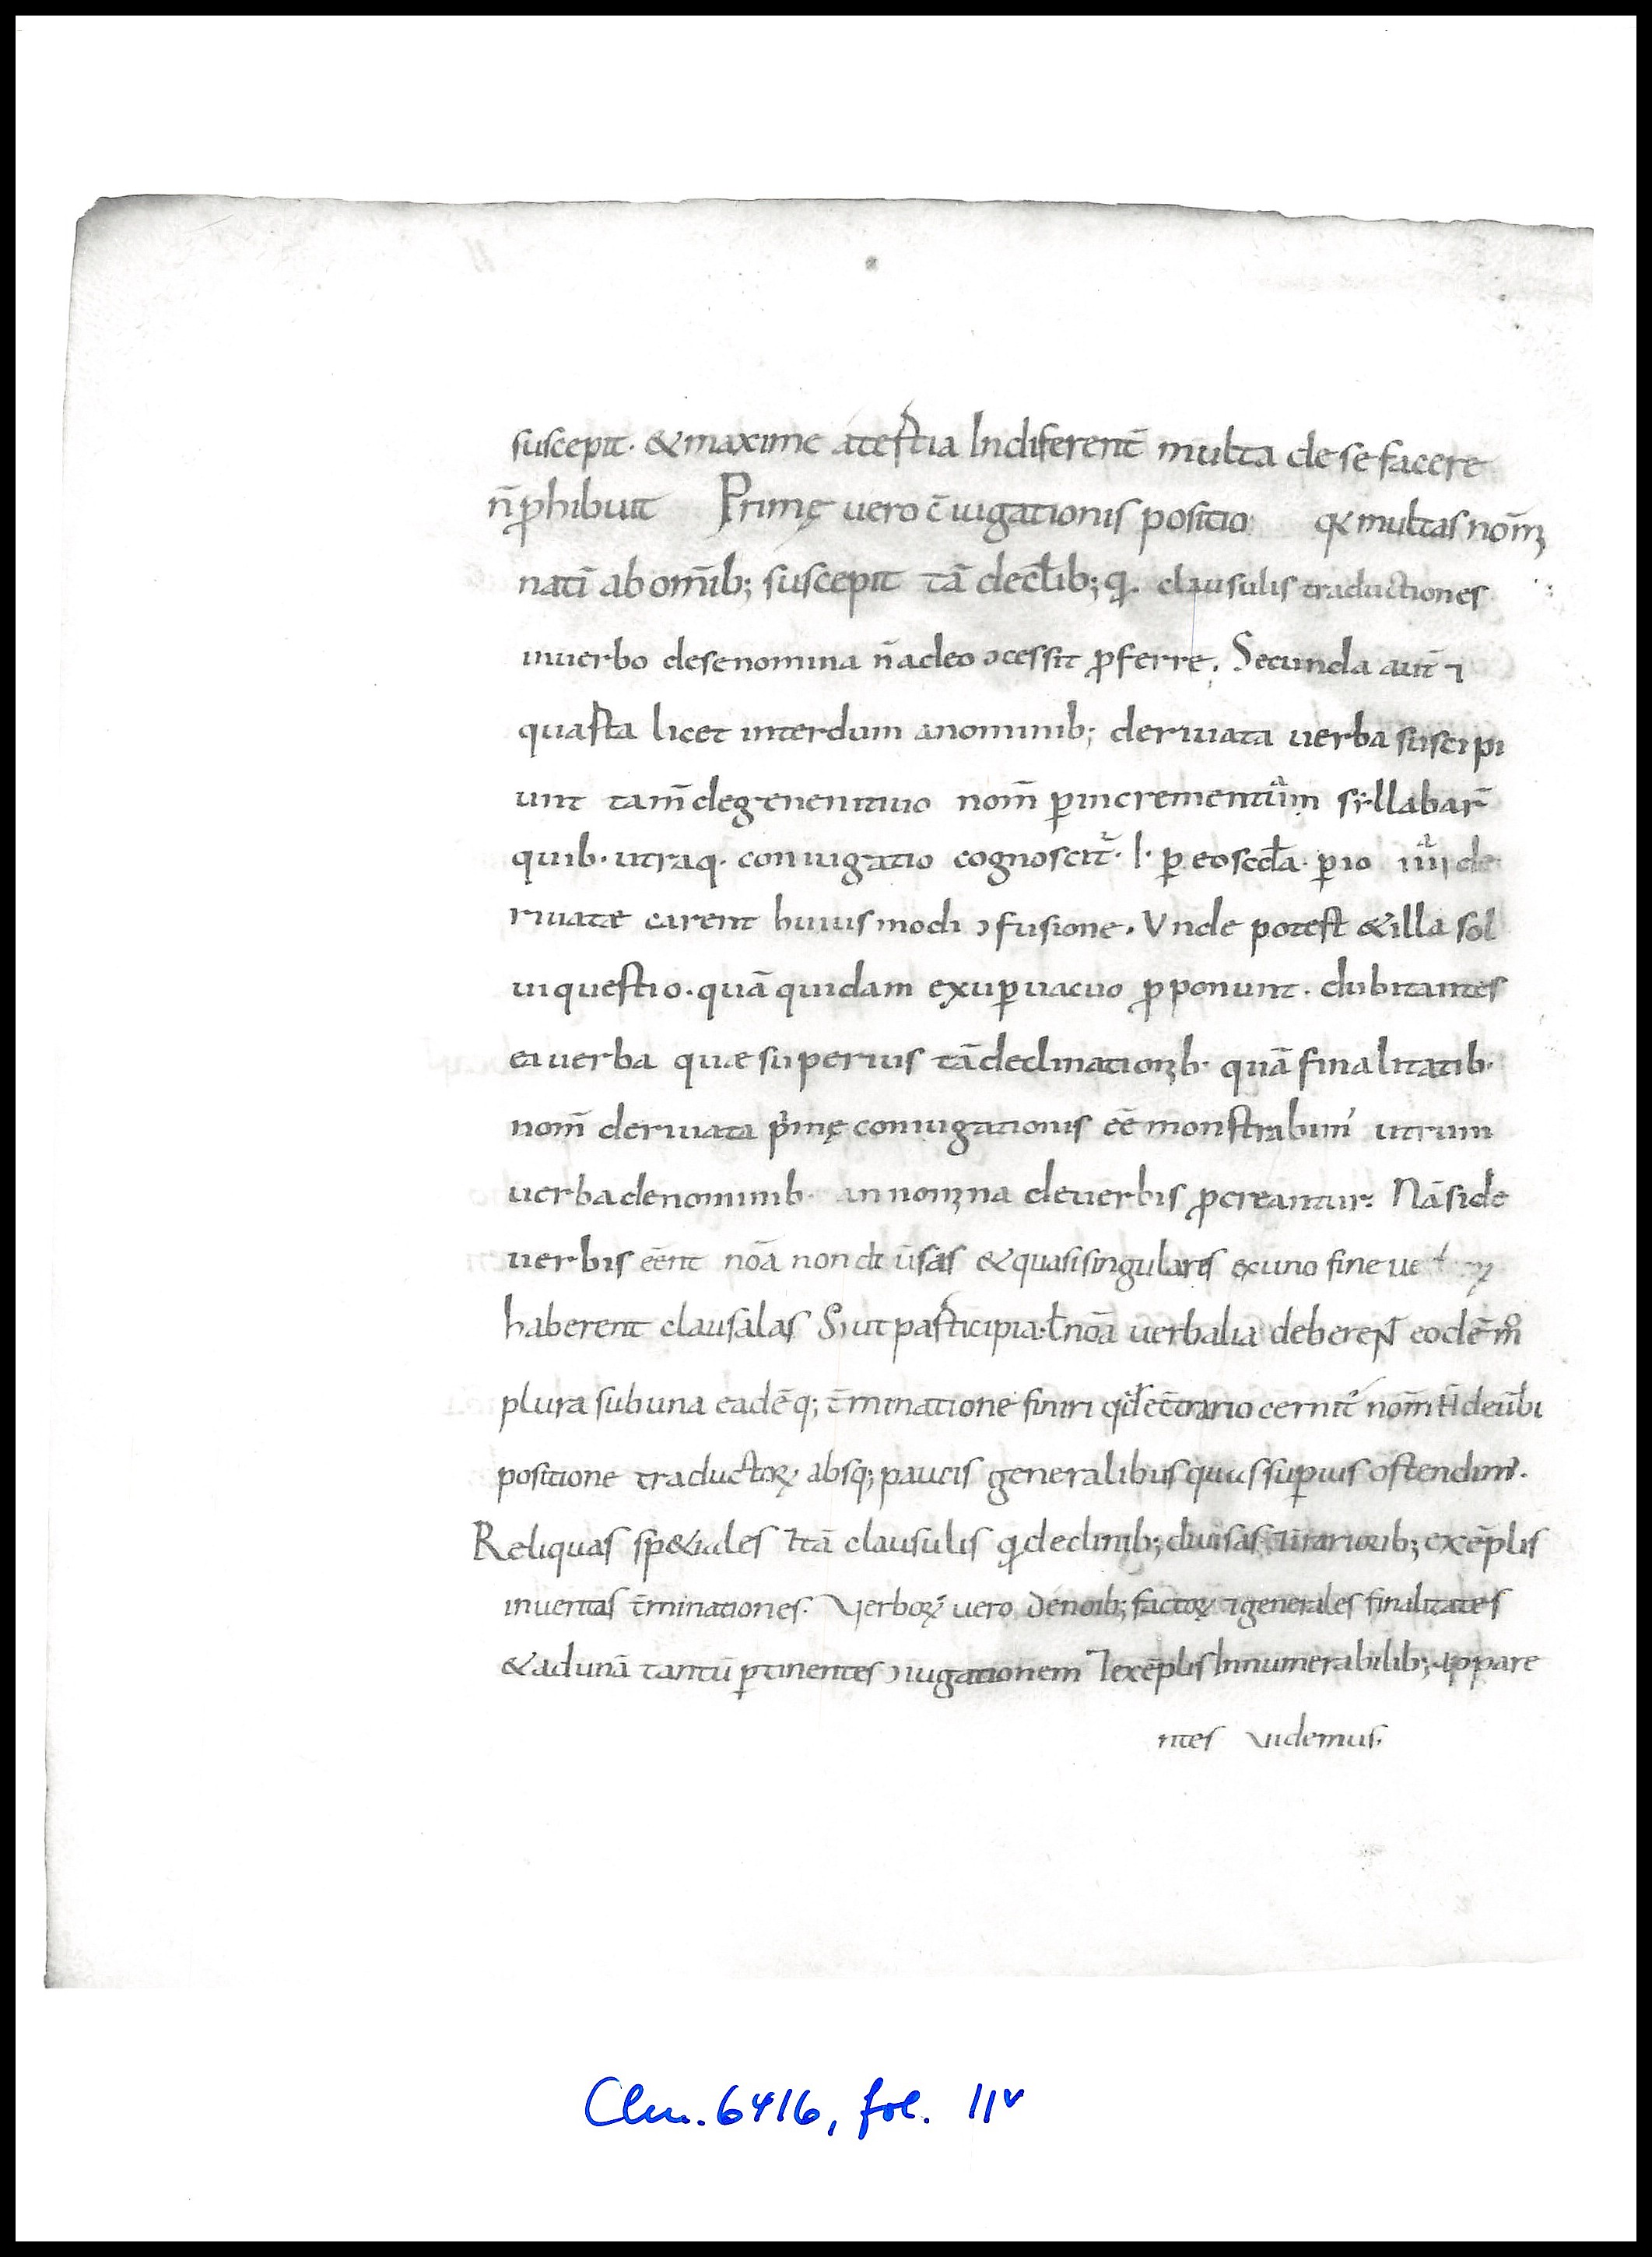 suscepit. &maxime atertia Indiferent̄ multa de se facere
n̄ ꝓhibuit Primę uero c̄iugationis positio q& multas nom̄
nati ̄ ab om̄ib; suscepit tā decl̄ib; q̄. clausulis traductiones
inuerbo desenomina n̄ adeo ɔcessit ꝓferre. Secunda aut̄ ⁊
quarta licet interdum anominib; deriuata uerba suscipi
unt tam̄ degenenitiuo nom̄ ꝑincrementum syllabar̄
quib. utraq. coniugatio cognoscit̄. l. ꝑ eo scd̄a. ꝑ io iiii de
riuatae carent huiusmodi ɔfusione. Vnde potest &illa sol
ui questio. quā quidam exuꝑuacuo ꝓponunt. dubitantes
ea uerba quae superius tā declinationib. quā finalitatib.
nom̄ deriuata p̍mę coniugationis eē monstrabim' utrum
uerba denominib. an nomina deuerbis ꝓcreantur: Nā side
uerbis eēnt nōa non di ūsas &quasi singulares exuno fine
haberent clausalas Sicut participia. l̄ nōa uerbalia deberent eodē m̊
plura subuna eadēq; t̄minatione finiri qđ ec̄trario cernit̄ nom̄ deūbi
positione traductoꝝ absq; paucis generalibus quas suꝑius ostendim'.
Reliquas sp&iales tā clausulis q̄ declinib; diuisas rarioribus; exēplis
inuentas t̄minationes. Verboꝝ uero denoib; factoꝝ ⁊ generales finalitates
&adunā tantū ꝑtinentes ɔiugationem exēplis Innumerabilib; appare
ntes uidemus.
Clm. 6416, fol. 11v